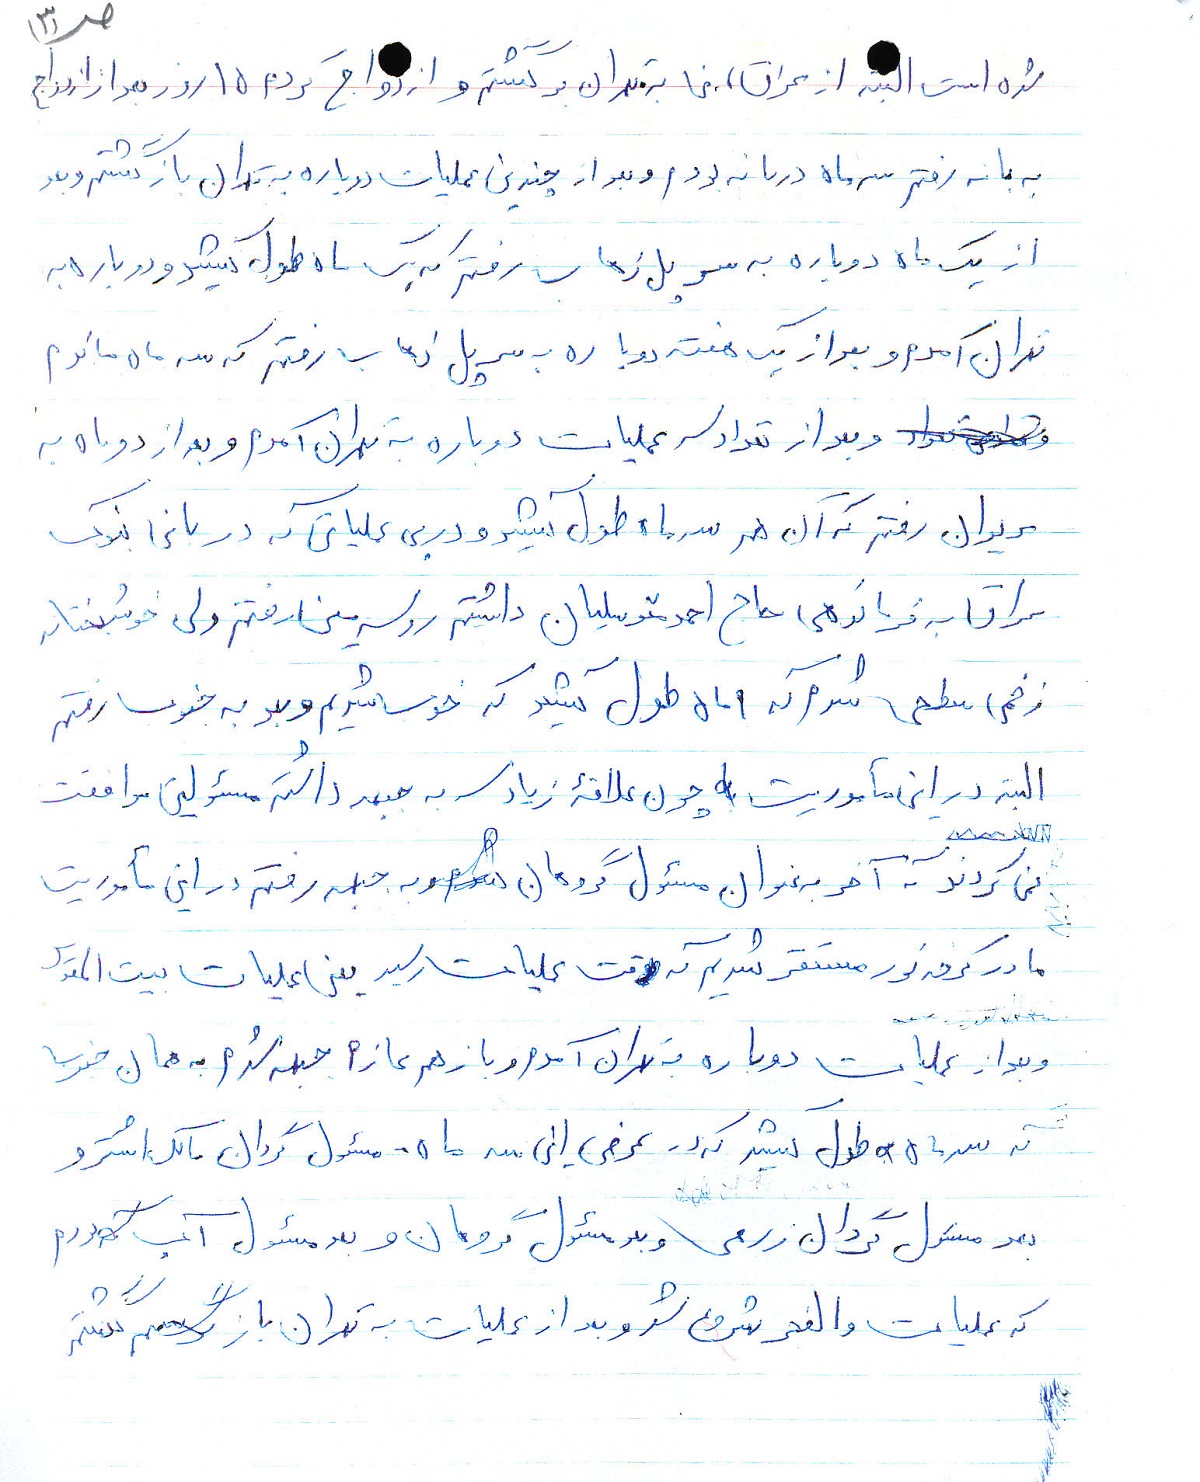 ص (۳)
شده است البته از عراق، به تهران برگشتم و ازدواج کردم ۱۵ روز بعد از ازدواج
به بانه رفتم سه ماه در بانه بودم و بعد از چندین عملیات دوباره به تهران بازگشتم و بعد
از یک ماه دوباره به سرپل ذهاب رفتم که یک ماه طول کشید و دوباره به
تهران آمدم و بعد از یک هفته دوباره به سرپل ذهاب رفتم که سه ماه ماندم
و بعد از تعداد سه عملیات دوباره به تهران آمدم و بعد از دو ماه به
مریوان رفتم که آن هم سه ماه طول کشید و در پی عملیاتی که در
عراق به فرماندهی حاج احمد متوسلیان داشتم روی مین رفتم ولی خوشبختانه
زخمی سطحی شدم که ۱ ماه طول کشید که خوب شدیم و بعد به جنوب رفتم
البته در این مأموریت چون علاقهٔ زیادی به جبهه داشته مسئولین موافقت
نمی کردند که آخر به عنوان مسئول گروهان به جبهه رفتم در این مأموریت
ما در کرخه نور مستقر شدیم که وقت عملیات رسید یعنی عملیات بیت المقدس
و بعد از عملیات دوباره به تهران آمدم و باز هم عازم جبهه شدم به همان جنوب
که سه ماه طول کشید که در عرض این سه ماه مسئول گردان مالک اشتر و
بعد مسئول گردان زرهی و بعد مسئول گروهان و بعد مسئول اکیپ بودم
که عملیات والفجر شروع شد و بعد از عملیات به تهران باز گشتم